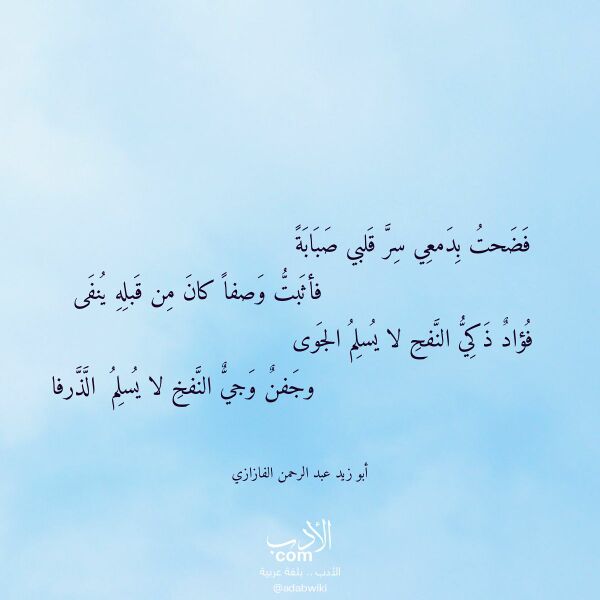 فَضَحتُ بِدَمعِي سِرَّ قَلبي صَبَابَةً
فأثبَتُّ وَصفاً كانَ مِن قَبلِهِ يُنفَى
فُؤادٌ ذَكِيُّ النَّفحِ لا يُسلِمُ الجَوَى
وجَفنٌ وَجيٌّ النَّفخِ لا يُسلِمُ الَّذَّرفا
أبو زيد عبد الرحمن الفازازي
الأدب
com
الأدب .. بلغة عربية
@adabwiki